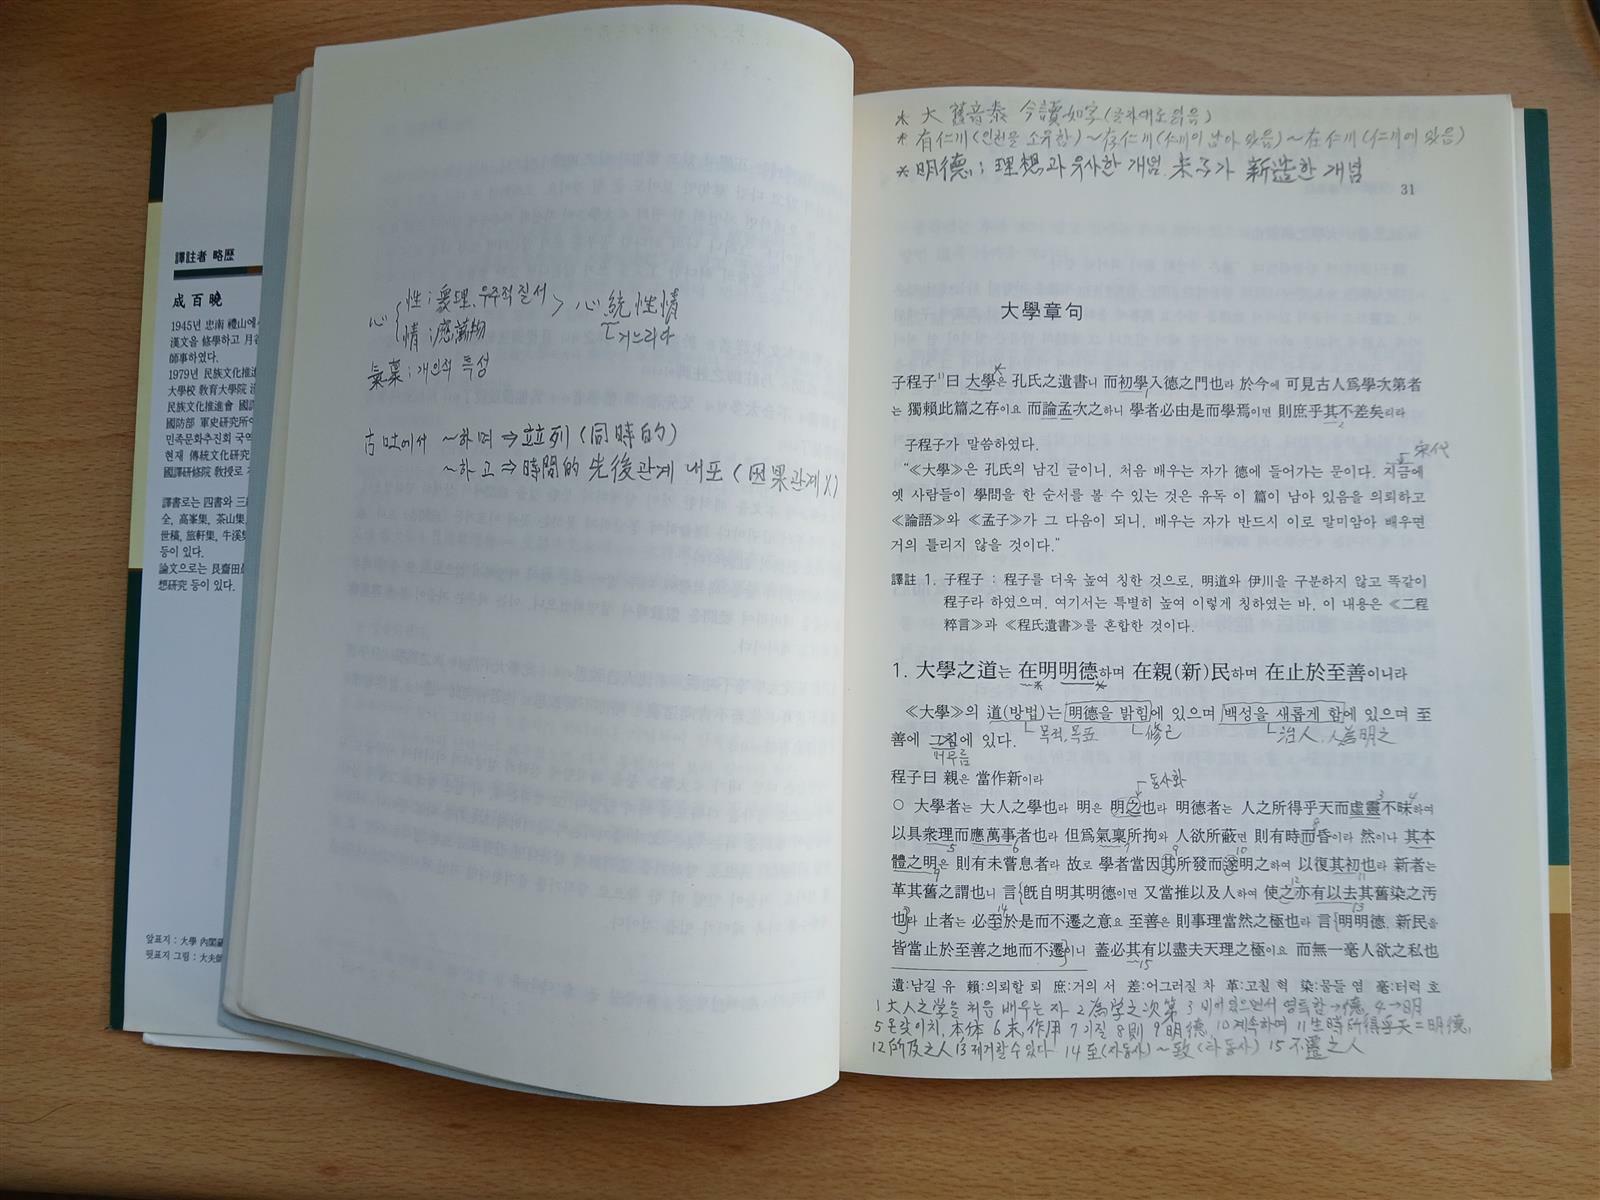 譯註者 略歷
成百曉
1945년 忠南 禮山에
漢文을 修學하고 月
師事하였다.
1979년 民族文化推進
大學校 敎育大學院
民族文化推進會 國譯
國防部 軍史硏究所
민족문화추진회 국역
현재 傳統文化硏究
國譯硏修院 敎授로
譯書로는 四書와 三
全, 高峯集, 茶山集,
世稿, 旅軒集, 牛溪集
등이 있다.
論文으로는 艮齋田
想硏究 등이 있다.
앞표지 : 大學 內閣
뒷표지 그림 : 大夫
心 性 ; 衆理, 우주적 질서 > 心統性情
情 ; 應萬物 거느리다
氣稟 : 개인적 특성
古吐에서 ~하며 ⇒ 竝列 (同時的)
~하고 ⇒ 時間的 先後관계 내포 (因果관계 X)
* 大 舊音泰 今讀如字 (글자대로 읽음)
* 有仁川 (인천을 소유함) ~ 存仁川 (仁川이 남아 있음) ~ 在仁川 (仁川에 있음)
* 明德 ; 理想과 유사한 개념. 朱子가 新造한 개념
31
大學章句
子程子¹⁾曰 大學은 孔氏之遺書니 而初學入德之門也라 於今에 可見古人爲學次第者
는 獨賴此篇之存이요 而論孟次之하니 學者必由是而學焉이면 則庶乎其不差矣리라
子程子가 말씀하였다. 宋代
“《大學》은 孔氏의 남긴 글이니, 처음 배우는 자가 德에 들어가는 문이다. 지금에
옛 사람들이 學問을 한 순서를 볼 수 있는 것은 유독 이 篇이 남아 있음을 의뢰하고
《論語》와 《孟子》가 그 다음이 되니, 배우는 자가 반드시 이로 말미암아 배우면
거의 틀리지 않을 것이다.”
譯註 1. 子程子 : 程子를 더욱 높여 칭한 것으로, 明道와 伊川을 구분하지 않고 똑같이
程子라 하였으며, 여기서는 특별히 높여 이렇게 칭하였는 바, 이 내용은 《二程
粹言》과 《程氏遺書》를 혼합한 것이다.
1. 大學之道는 在明明德하며 在親(新)民하며 在止於至善이니라
《大學》의 道(방법)는 明德을 밝힘에 있으며 백성을 새롭게 함에 있으며 至
善에 그침에 있다. 목적, 목표 修己 治人, 人爲明之
머무름
程子曰 親은 當作新이라 동사화
○ 大學者는 大人之學也라 明은 明之也라 明德者는 人之所得乎天而虛靈不昧하여
以具衆理而應萬事者也라 但爲氣稟所拘와 人欲所蔽면 則有時而昏이라 然이나 其本
體之明은 則有未嘗息者라 故로 學者當因其所發而遂明之하여 以復其初也라 新者는
革其舊之謂也니 言旣自明其明德이면 又當推以及人하여 使之亦有以去其舊染之汚
也라 止者는 必至於是而不遷之意요 至善은 則事理當然之極也라 言明明德, 新民을
皆當止於至善之地而不遷이니 蓋必其有以盡夫天理之極이요 而無一毫人欲之私也
遺:남길 유 賴:의뢰할 뢰 庶:거의 서 差:어그러질 차 革:고칠 혁 染:물들 염 毫:터럭 호
1 大人之学을 처음 배우는 자 2 為学之次第 3 비어있으면서 영특함 → 德, 4 → 明
5 온갖이치, 本体 6 末, 作用 7 기질 8 則 9 明德, 10 계속하며 11 生時所得乎天 = 明德,
12 所及之人 13 제거할 수 있다 14 至(자동사) ~ 致 (타동사) 15 不遷之人